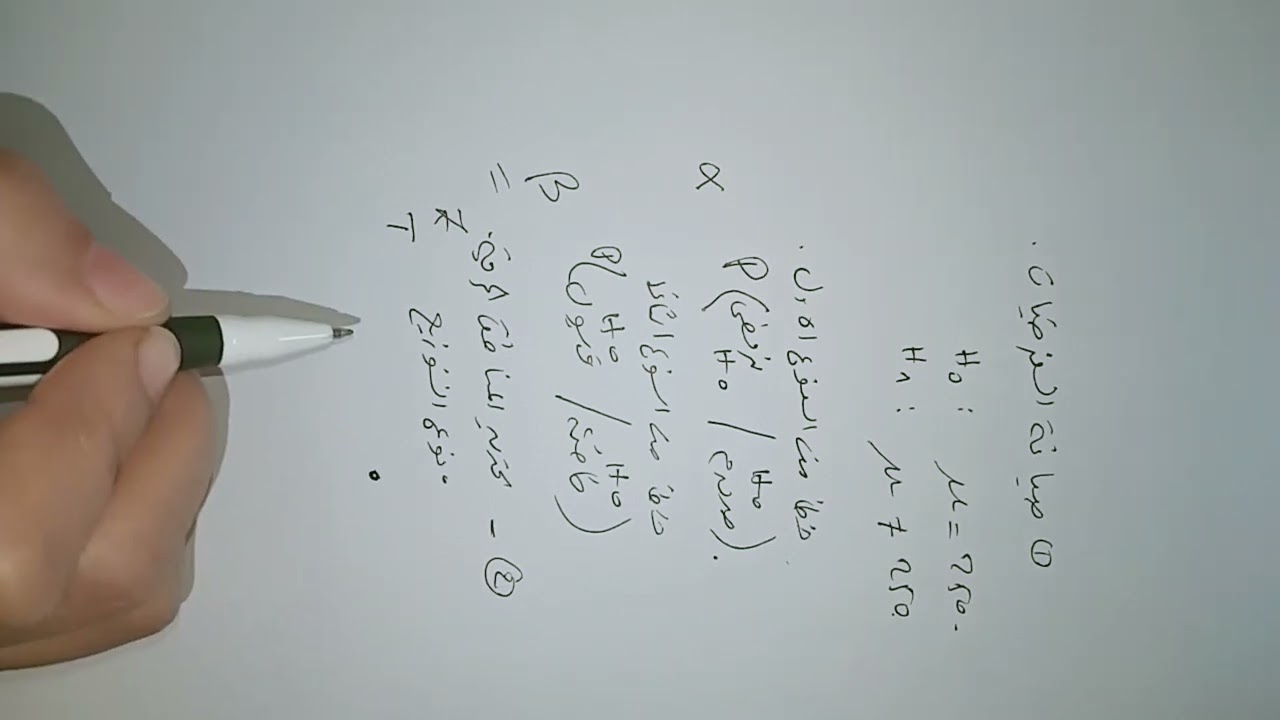 ① صياغة الفرضيات.
H₀ : μ = 250.
H₁ : μ ≠ 250
خطأ من النوع الأول.
α P(نرفض H₀ / H₀ صحيح).
خطأ من النوع الثاني
β P(قبول H₀ / H₀ خاطئة)
② - المنطقة الحرجة. =
• نوع التوزيع Z
T
•